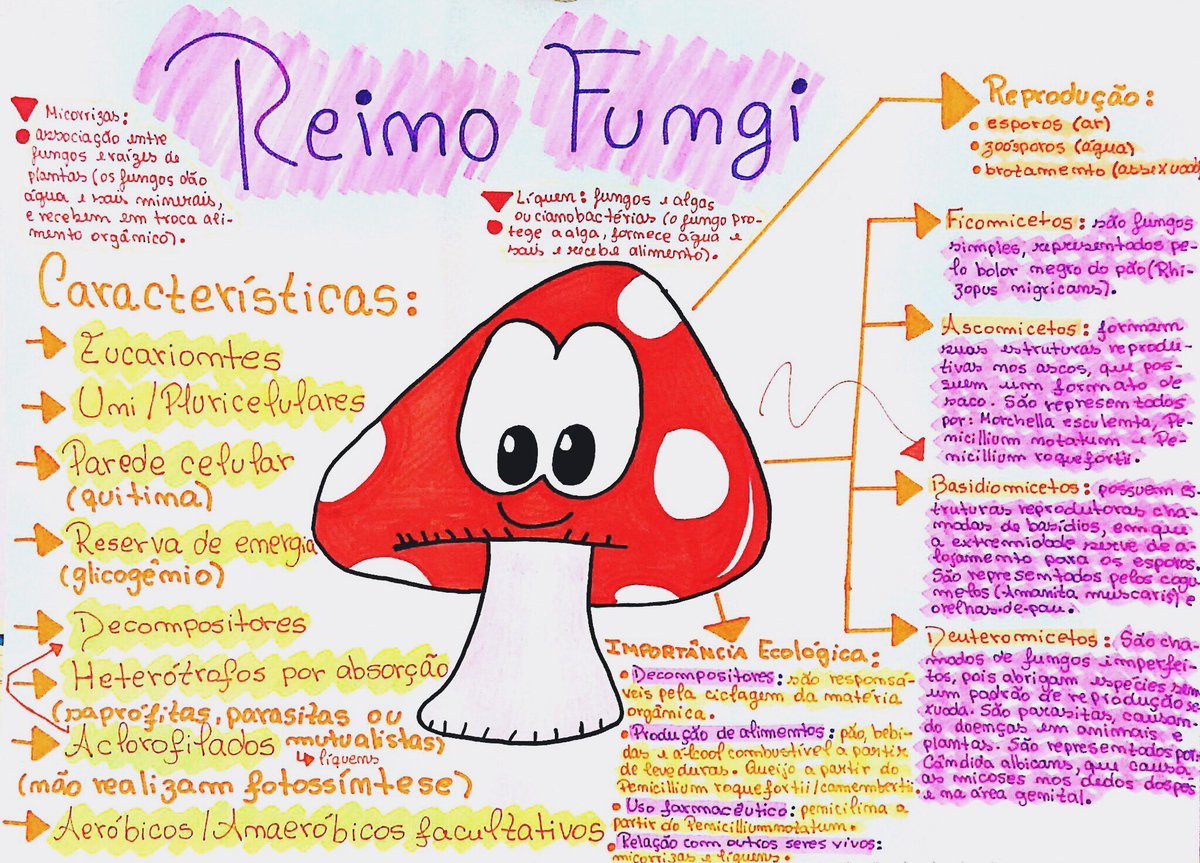 Reino Fungi
Micorrizas:
associação entre
fungos e raízes de
plantas (os fungos dão
água e sais minerais,
e recebem em troca ali-
mento orgânico).
Líquen: fungos e algas
ou cianobactérias (o fungo pro-
tege a alga, fornece água e
sais e recebe alimento).
Características:
Eucariontes
Uni/Pluricelulares
Parede celular
(quitina)
Reserva de energia
(glicogênio)
Decompositores
Heterótrofos por absorção
(saprófitas, parasitas ou
mutualistas)
líquens
Aclorofilados
(não realizam fotossíntese)
Aeróbicos/Anaeróbicos facultativos
Reprodução:
esporos (ar)
zoósporos (água)
brotamento (assexuado
Ficomicetos: são fungos
simples, representados pe-
lo bolor negro do pão (Rhi-
zopus nigricans).
Ascomicetos: formam
suas estruturas reprodu-
tivas nos ascos, que pos-
suem um formato de
saco. São representados
por: Morchella esculenta, Pe-
nicillium notatum e Pe-
nicillium roquefortii.
Basidiomicetos: possuem es-
truturas reprodutoras cha-
madas de basídios, em que
a extremidade serve de a-
lojamento para os esporos.
São representados pelos cogu
melos (Amanita muscaris) e
orelhas-de-pau.
Deuteromicetos: São cha-
mados de fungos imperfei-
tos, pois abrigam espécies sem
um padrão de reprodução se
xuada. São parasitas, causan-
do doenças em animais e
plantas. São representados por:
Cândida albicans, que causa
as micoses nos dedos dos pés
e na área genital.
IMPORTÂNCIA Ecológica:
Decompositores: são responsá-
veis pela ciclagem da matéria
orgânica.
Produção de alimentos: pão, bebi-
das e álcool combustível a partir
de leveduras. Queijo a partir do
Penicillium roquefortii/camembertii.
Uso farmacêutico: penicilina a
partir do Penicillium notatum.
Relação com outros seres vivos:
micorrizas e líquens.